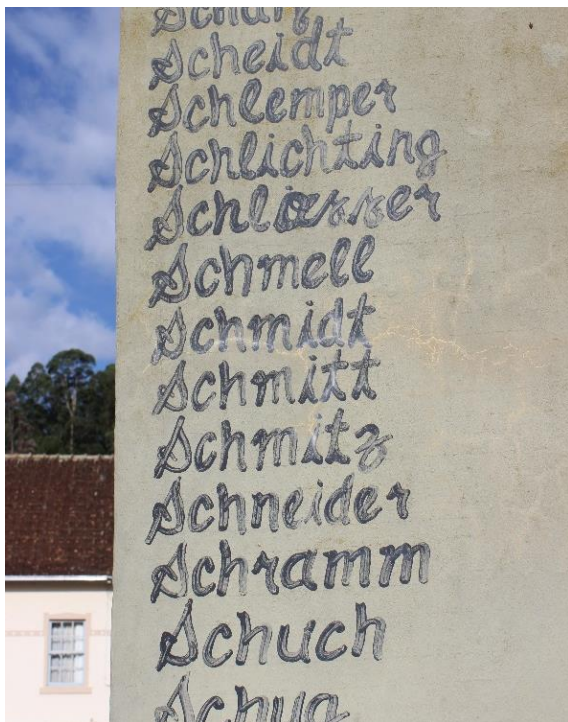 Scheidt
Schlemper
Schlichting
Schlœsser
Schmell
Schmidt
Schmitt
Schmitz
Schneider
Schramm
Schuch
Schug